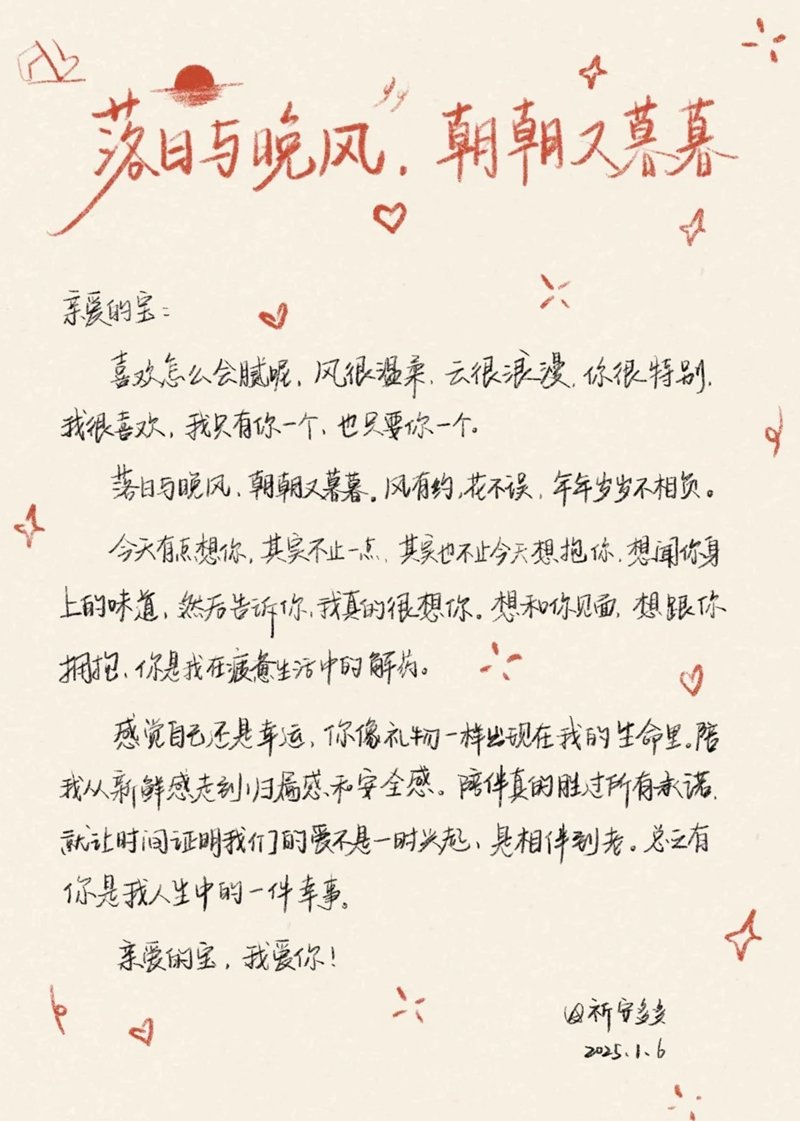 落日与晚风，朝朝又暮暮
亲爱的宝：
喜欢怎么会腻呢，风很温柔，云很浪漫，你很特别，
我很喜欢，我只有你一个，也只要你一个。
落日与晚风，朝朝又暮暮。风有约，花不误，年年岁岁不相负。
今天有点想你，其实不止一点，其实也不止今天想抱你，想闻你身
上的味道，然后告诉你，我真的很想你。想和你见面，想跟你
拥抱，你是我在疲惫生活中的解药。
感觉自己还是幸运，你像礼物一样出现在我的生命里。陪
我从新鲜感走到归属感和安全感。陪伴真的胜过所有承诺，
就让时间证明我们的爱不是一时兴起，是相伴到老。总之有
你是我人生中的一件幸事。
亲爱的宝，我爱你！
@祈安多多
2025.1.6